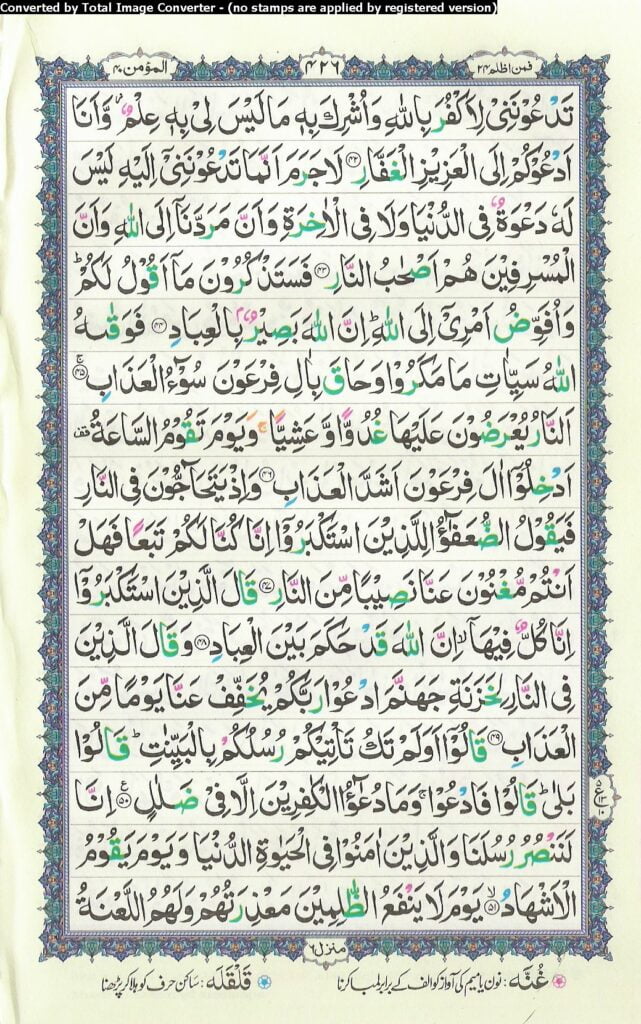 Converted by Total Image Converter - (no stamps are applied by registered version)
فمن اظلم ٢٤
٤٢٦
المؤمن ٤٠
تَدْعُوْنَنِيْ لِاَكْفُرَ بِاللّٰهِ وَاُشْرِكَ بِهٖ مَا لَيْسَ لِيْ بِهٖ عِلْمٌ ۫ وَّاَنَا
اَدْعُوْكُمْ اِلَى الْعَزِيْزِ الْغَفَّارِ ﴿٤٢﴾ لَا جَرَمَ اَنَّمَا تَدْعُوْنَنِيْۤ اِلَيْهِ لَيْسَ
لَهٗ دَعْوَةٌ فِي الدُّنْيَا وَلَا فِي الْاٰخِرَةِ وَاَنَّ مَرَدَّنَاۤ اِلَى اللّٰهِ وَاَنَّ
الْمُسْرِفِيْنَ هُمْ اَصْحٰبُ النَّارِ ﴿٤٣﴾ فَسَتَذْكُرُوْنَ مَاۤ اَقُوْلُ لَكُمْ ؕ
وَاُفَوِّضُ اَمْرِيْۤ اِلَى اللّٰهِ ؕ اِنَّ اللّٰهَ بَصِيْرٌۢ بِالْعِبَادِ ﴿٤٤﴾ فَوَقٰىهُ
اللّٰهُ سَيِّاٰتِ مَا مَكَرُوْا وَحَاقَ بِاٰلِ فِرْعَوْنَ سُوْٓءُ الْعَذَابِ ﴿٤٥﴾ ۚ
اَلنَّارُ يُعْرَضُوْنَ عَلَيْهَا غُدُوًّا وَّعَشِيًّا ۚ وَيَوْمَ تَقُوْمُ السَّاعَةُ ۟
اَدْخِلُوْۤا اٰلَ فِرْعَوْنَ اَشَدَّ الْعَذَابِ ﴿٤٦﴾ وَاِذْ يَتَحَآجُّوْنَ فِي النَّارِ
فَيَقُوْلُ الضُّعَفٰٓؤُا لِلَّذِيْنَ اسْتَكْبَرُوْۤا اِنَّا كُنَّا لَكُمْ تَبَعًا فَهَلْ
اَنْتُمْ مُّغْنُوْنَ عَنَّا نَصِيْبًا مِّنَ النَّارِ ﴿٤٧﴾ قَالَ الَّذِيْنَ اسْتَكْبَرُوْۤا
اِنَّا كُلٌّ فِيْهَاۤ ۙ اِنَّ اللّٰهَ قَدْ حَكَمَ بَيْنَ الْعِبَادِ ﴿٤٨﴾ وَقَالَ الَّذِيْنَ
فِي النَّارِ لِخَزَنَةِ جَهَنَّمَ ادْعُوْا رَبَّكُمْ يُخَفِّفْ عَنَّا يَوْمًا مِّنَ
الْعَذَابِ ﴿٤٩﴾ قَالُوْۤا اَوَلَمْ تَكُ تَاْتِيْكُمْ رُسُلُكُمْ بِالْبَيِّنٰتِ ؕ قَالُوْا
بَلٰى ؕ قَالُوْا فَادْعُوْا ۚ وَمَا دُعٰٓؤُا الْكٰفِرِيْنَ اِلَّا فِيْ ضَلٰلٍ ﴿٥٠﴾ ع اِنَّا
لَنَنْصُرُ رُسُلَنَا وَالَّذِيْنَ اٰمَنُوْا فِي الْحَيٰوةِ الدُّنْيَا وَيَوْمَ يَقُوْمُ
الْاَشْهَادُ ﴿٥١﴾ ۙ يَوْمَ لَا يَنْفَعُ الظّٰلِمِيْنَ مَعْذِرَتُهُمْ وَلَهُمُ اللَّعْنَةُ
منزل ٦
غُنَّه: نون یا میم کی آواز کو الف کے برابر لمبا کرنا
قَلْقَلَه: ساکن حرف کو ہلا کر پڑھنا